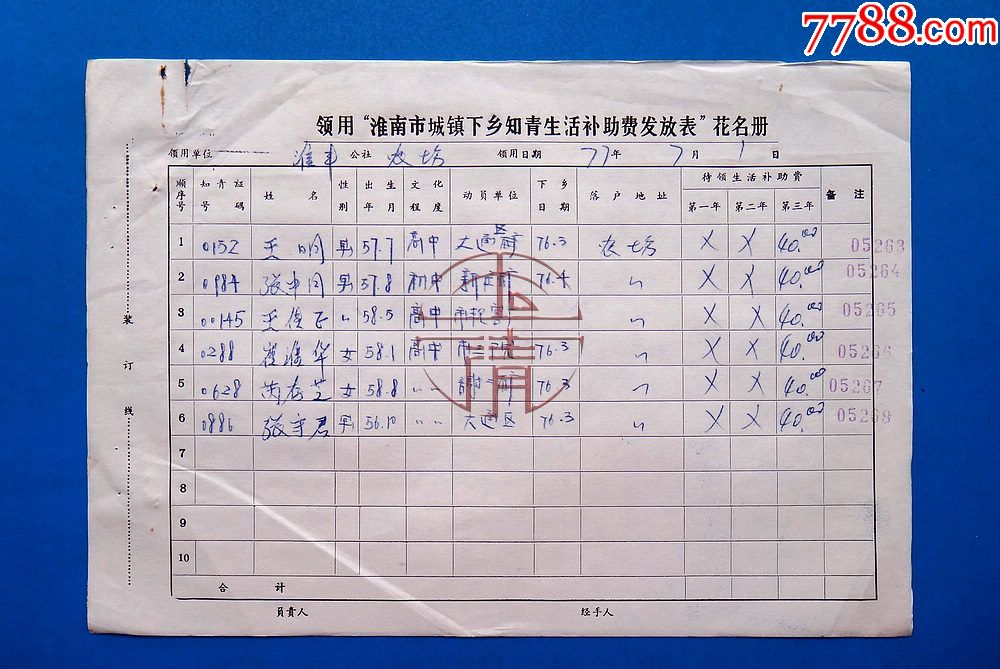 7788.com
领用“淮南市城镇下乡知青生活补助费发放表”花名册
领用单位 淮丰 公社 农场 领用日期 77年 7月 1日
顺序号 知青证号码 姓名 性别 出生年月 文化程度 动员单位 下乡日期 落户地址 待领生活补助费 备注
第一年 第二年 第三年
1 0152 王明 男 57.7 高中 大通区 76.3 农场 X X 40.00 05263
2 0984 张中同 男 57.8 初中 76.4 〃 X X 40.00 05264
3 00145 王俊 〃 58.5 高中 〃 X X 40.00 05265
4 0288 崔淮华 女 58.1 高中 76.3 〃 X X 40.00 05266
5 0628 女 58.8 〃〃 76.3 〃 X X 40.00 05267
6 0886 张守君 男 56.10 〃〃 大通区 76.3 〃 X X 40.00 05268
7
8
9
10
合计
员责人 经手人
装订线